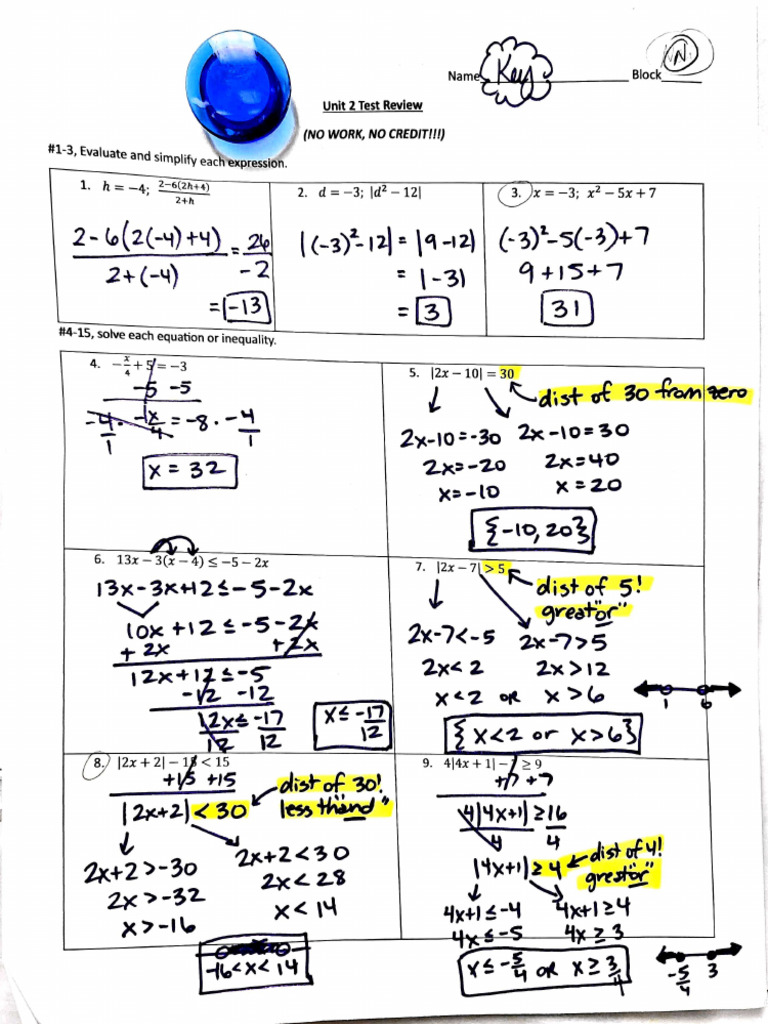 Name Key Block N
Unit 2 Test Review
(NO WORK, NO CREDIT!!!)
#1-3, Evaluate and simplify each expression.
1. h = −4; 2−6(2h+4)/2+h
2-6(2(-4)+4)/2+(-4) = 26/-2
= -13
2. d = −3; |d² − 12|
|(-3)²-12| = |9-12|
= |-3|
= 3
3. x = −3; x² − 5x + 7
(-3)²-5(-3)+7
9+15+7
31
#4-15, solve each equation or inequality.
4. −x/4 + 5 = −3
-5 -5
-4/1 · -x/4 = -8 · -4/1
x = 32
5. |2x − 10| = 30
dist of 30 from zero
2x-10=-30 2x-10=30
2x=-20 2x=40
x=-10 x=20
{-10,20}
6. 13x − 3(x − 4) ≤ −5 − 2x
13x-3x+12≤-5-2x
10x+12≤-5-2x
+2x +2x
12x+12≤-5
-12 -12
12x/12 ≤ -17/12
x≤-17/12
7. |2x − 7| > 5
dist of 5!
great"or"
2x-7<-5 2x-7>5
2x<2 2x>12
x<2 or x>6
1 6
{x<2 or x>6}
8. |2x + 2| − 15 < 15
+15 +15
|2x+2| < 30
dist of 30!
less th"and"
2x+2>-30 2x+2<30
2x>-32 2x<28
x>-16 x<14
-16<x<14
9. 4|4x + 1| − 7 ≥ 9
+7 +7
4|4x+1|/4 ≥ 16/4
|4x+1| ≥ 4
dist of 4!
great"or"
4x+1≤-4 4x+1≥4
4x≤-5 4x≥3
x≤-5/4 or x≥3/4
-5/4 3